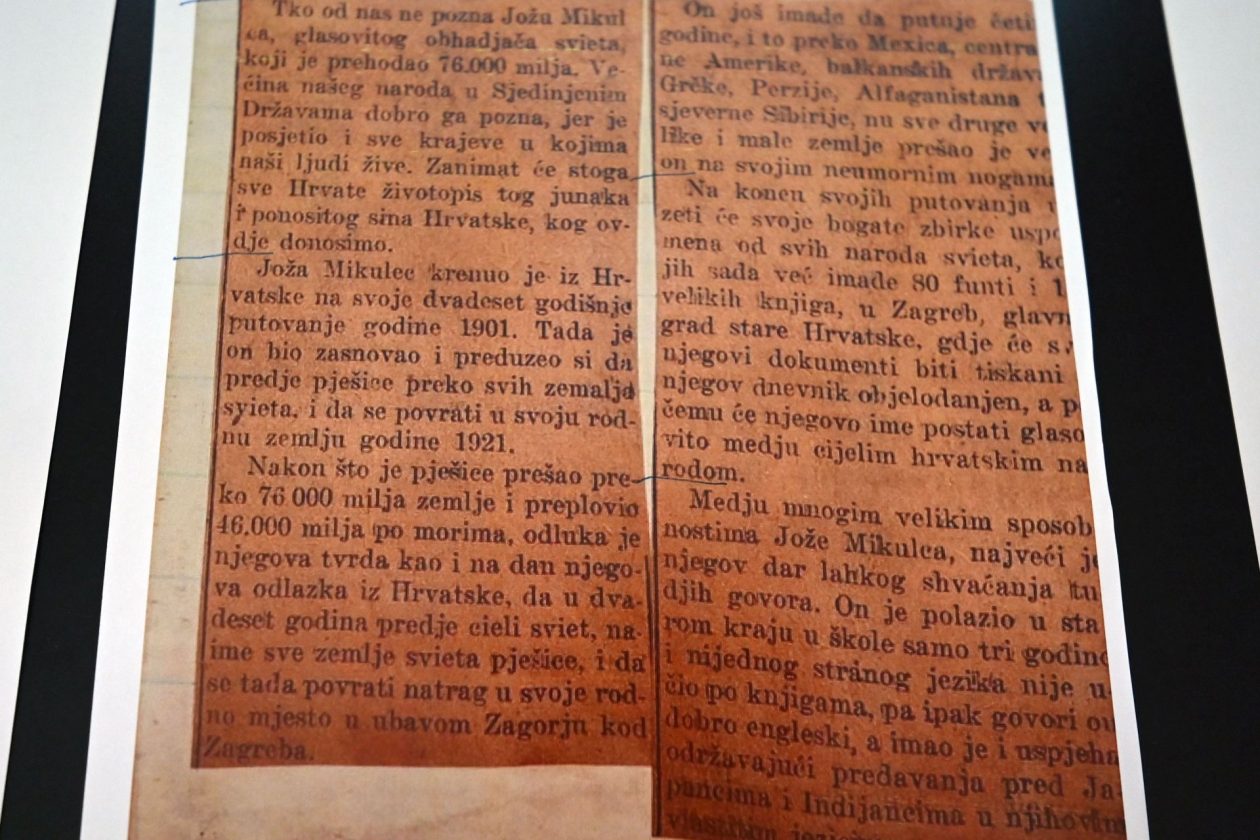 Tko od nas ne pozna Jožu Mikul
ca, glasovitog obhadjača svieta,
koji je prehodao 76.000 milja. Ve-
ćina našeg naroda u Sjedinjenim
Državama dobro ga pozna, jer je
posjetio i sve krajeve u kojima
naši ljudi žive. Zanimat će stoga
sve Hrvate životopis tog junaka
i ponositog sina Hrvatske, kog ov-
dje donosimo.
Joža Mikulec krenuo je iz Hr-
vatske na svoje dvadeset godišnje
putovanje godine 1901. Tada je
on bio zasnovao i preduzeo si da
predje pješice preko svih zemalja
svieta, i da se povrati u svoju rod-
nu zemlju godine 1921.
Nakon što je pješice prešao pre-
ko 76 000 milja zemlje i preplovio
46.000 milja po morima, odluka je
njegova tvrda kao i na dan njego-
va odlazka iz Hrvatske, da u dva-
deset godina predje cieli sviet, na-
ime sve zemlje svieta pješice, i da
se tada povrati natrag u svoje rod-
no mjesto u ubavom Zagorju kod
Zagreba.
On još imade da putuje četi
godine, i to preko Mexica, centra
ne Amerike, balkanskih držav
Grčke, Perzije, Alfaganistana
sjeverne Sibirije, nu sve druge ve
like i male zemlje prešao je ve
on na svojim neumornim nogama
Na koncu svojih putovanja
zeti će svoje bogate zbirke uspo
mena od svih naroda svieta, ko
jih sada već imade 80 funti i 1
velikih knjiga, u Zagreb, glavn
grad stare Hrvatske, gdje će s
njegovi dokumenti biti tiskani
njegov dnevnik objelodanjen, a p
čemu će njegovo ime postati glaso
vito medju cijelim hrvatskim na
rodom.
Medju mnogim velikim sposob
nostima Jože Mikulca, najveći je
njegov dar lahkog shvaćanja tu
djih govora. On je polazio u sta
rom kraju u škole samo tri godine
i nijednog stranog jezika nije u-
čio po knjigama, pa ipak govori ov
dobro engleski, a imao je i uspjeha
održavajući predavanja pred Ja-
pancima i Indijancima u njihovim
vlastitim